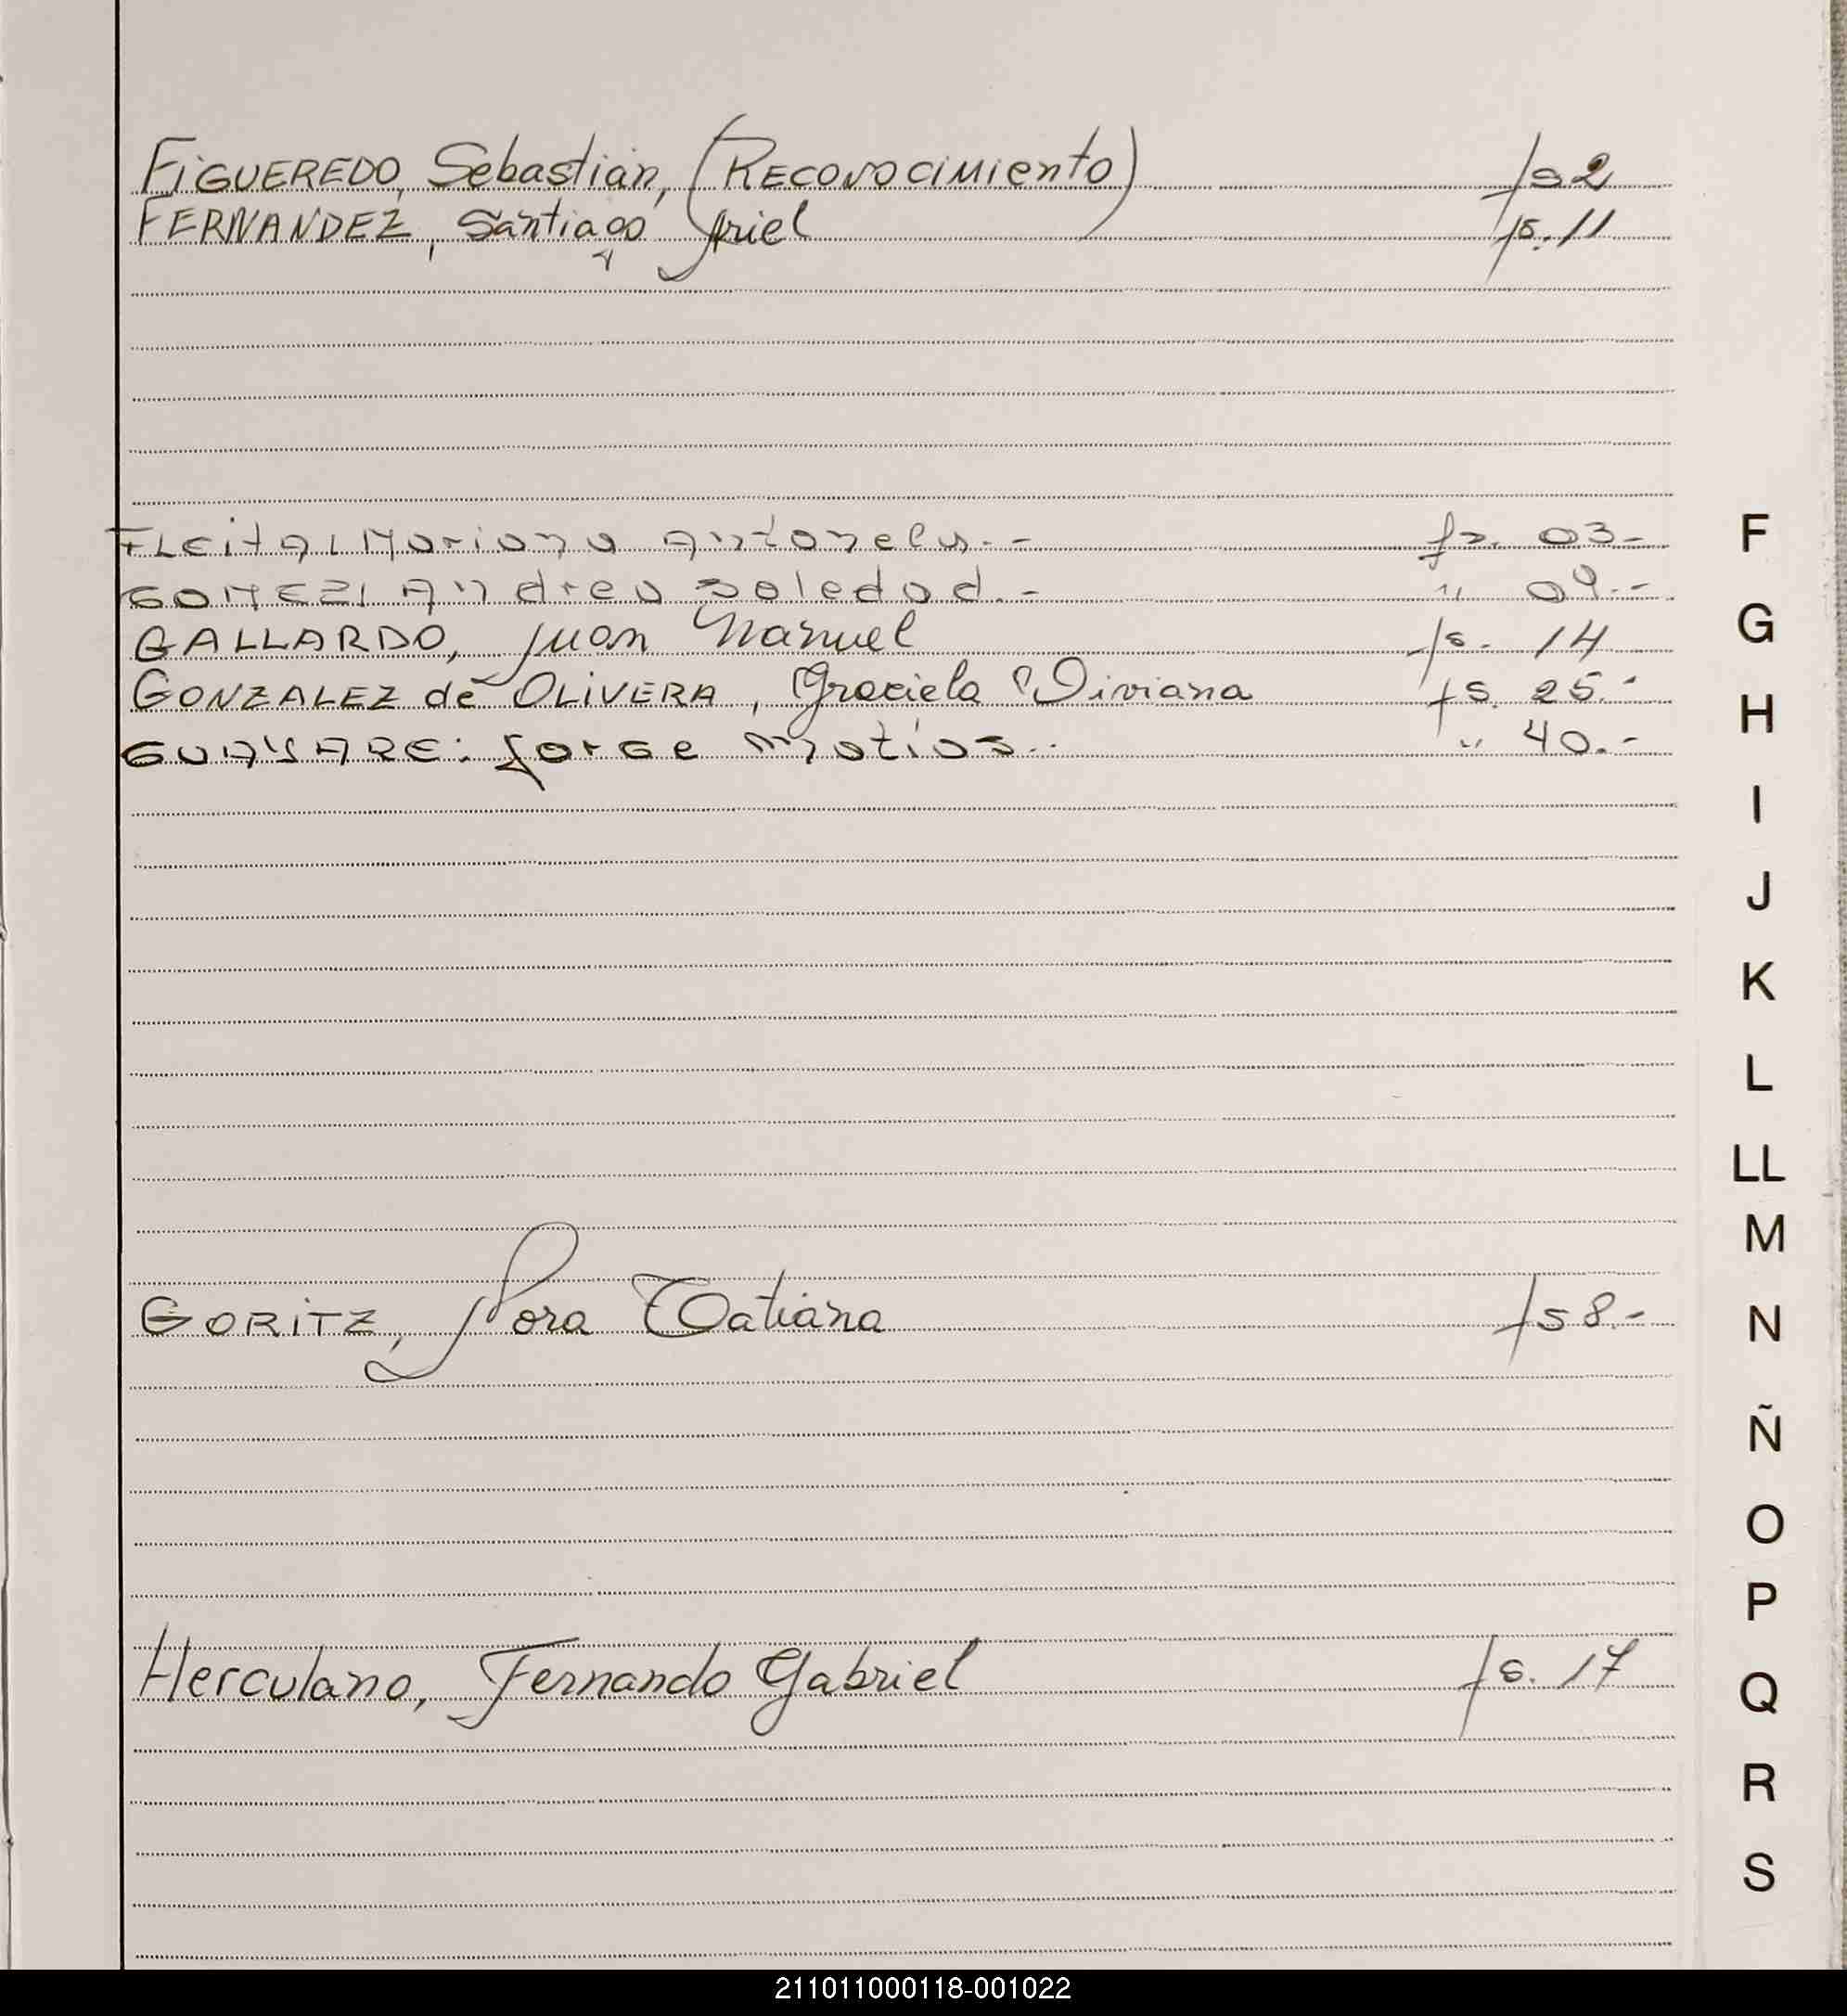 FIGUEREDO, Sebastián, (RECONOCIMIENTO) fs 2
FERNANDEZ, Santiago Ariel fs. 11
FLEITA, Mariana Antonela.- fs. 03-
GOMEZ, Andrea Soledad.- " 09.-
GALLARDO, Juan Manuel fs. 14
GONZALEZ de OLIVERA, Graciela Viviana fs. 25.-
GUAYARE: Jorge Matías.. " 40.-
GORITZ, Tatiana fs 8.-
Herculano, Fernando Gabriel fs. 17
F
G
H
I
J
K
L
LL
M
N
Ñ
O
P
Q
R
S
211011000118-001022